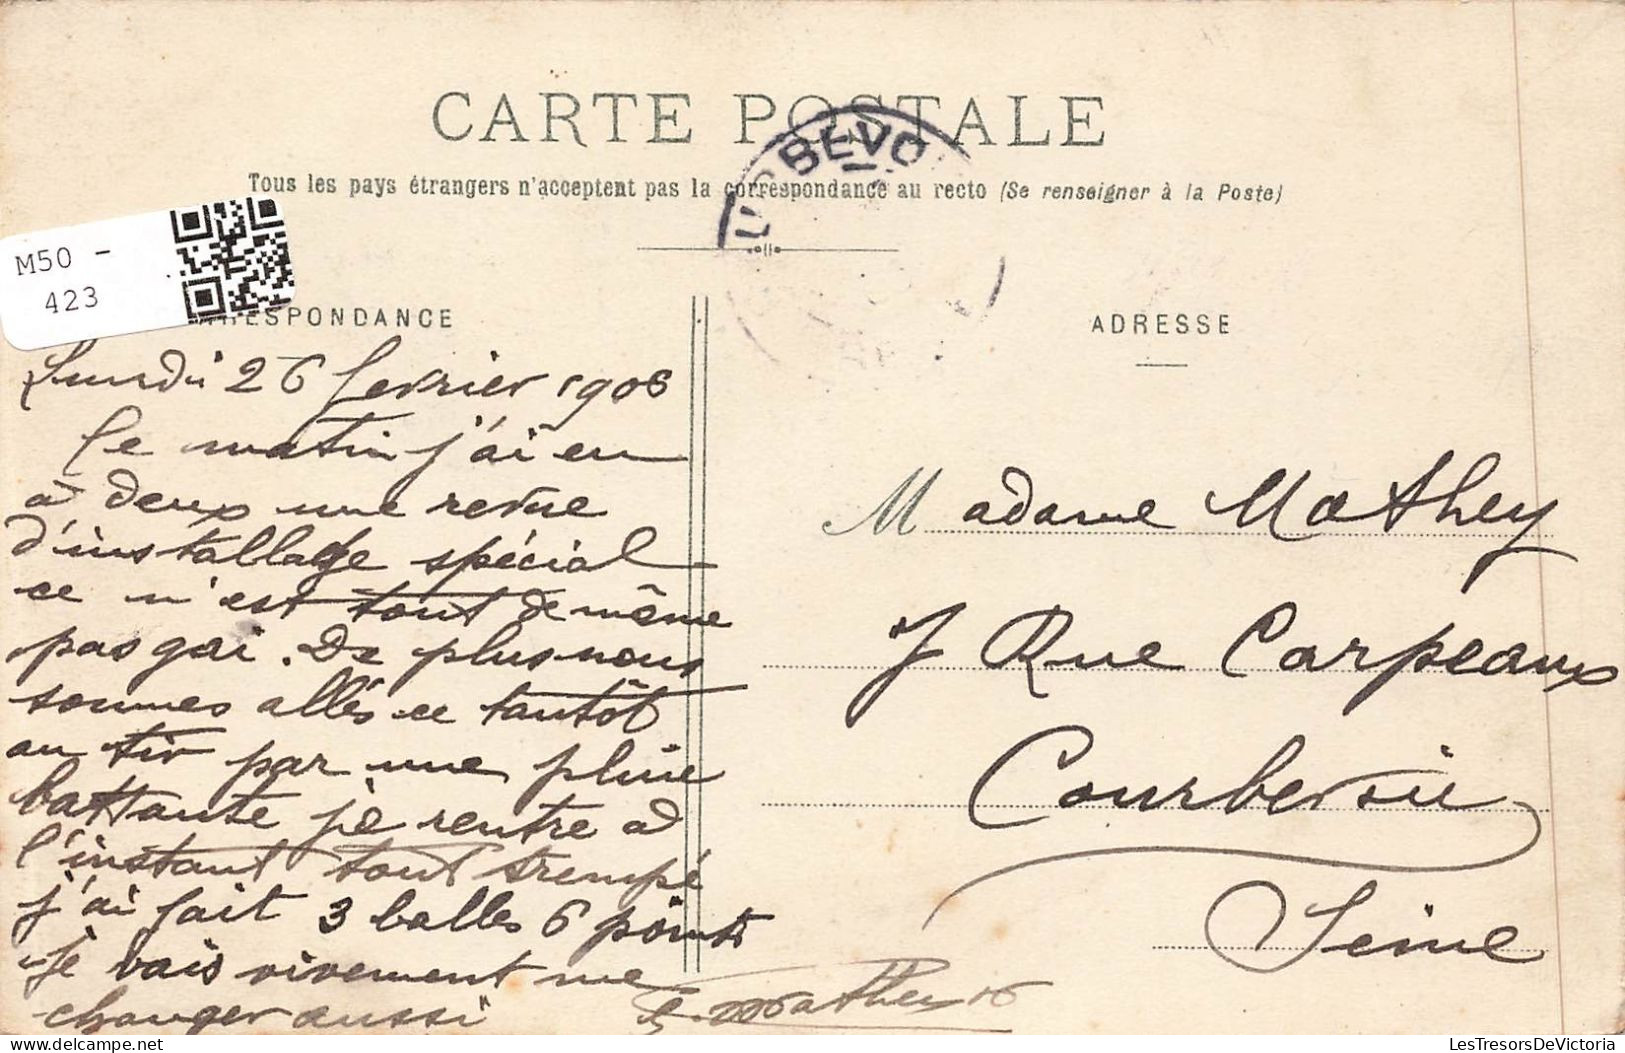 CARTE POSTALE
Tous les pays étrangers n'acceptent pas la correspondance au recto (Se renseigner à la Poste)
BEVO
M50 -
423
RESPONDANCE
ADRESSE
Lundi 26 fevrier 1906
Ce matin j'ai eu
à deux une revue
d'installage spécial
ce n'est tout de même
pas gai. De plus nous
sommes allés ce tantôt
au tir par une pluie
battante je rentre à
l'instant tout trempé
j'ai fait 3 balles 6 points
Je vais vivement me
changer aussi
Mathey
Madame Mathey
7 Rue Carpeaux
Courbevoie
Seine
LesTresorsDeVictoria
delcampe.net